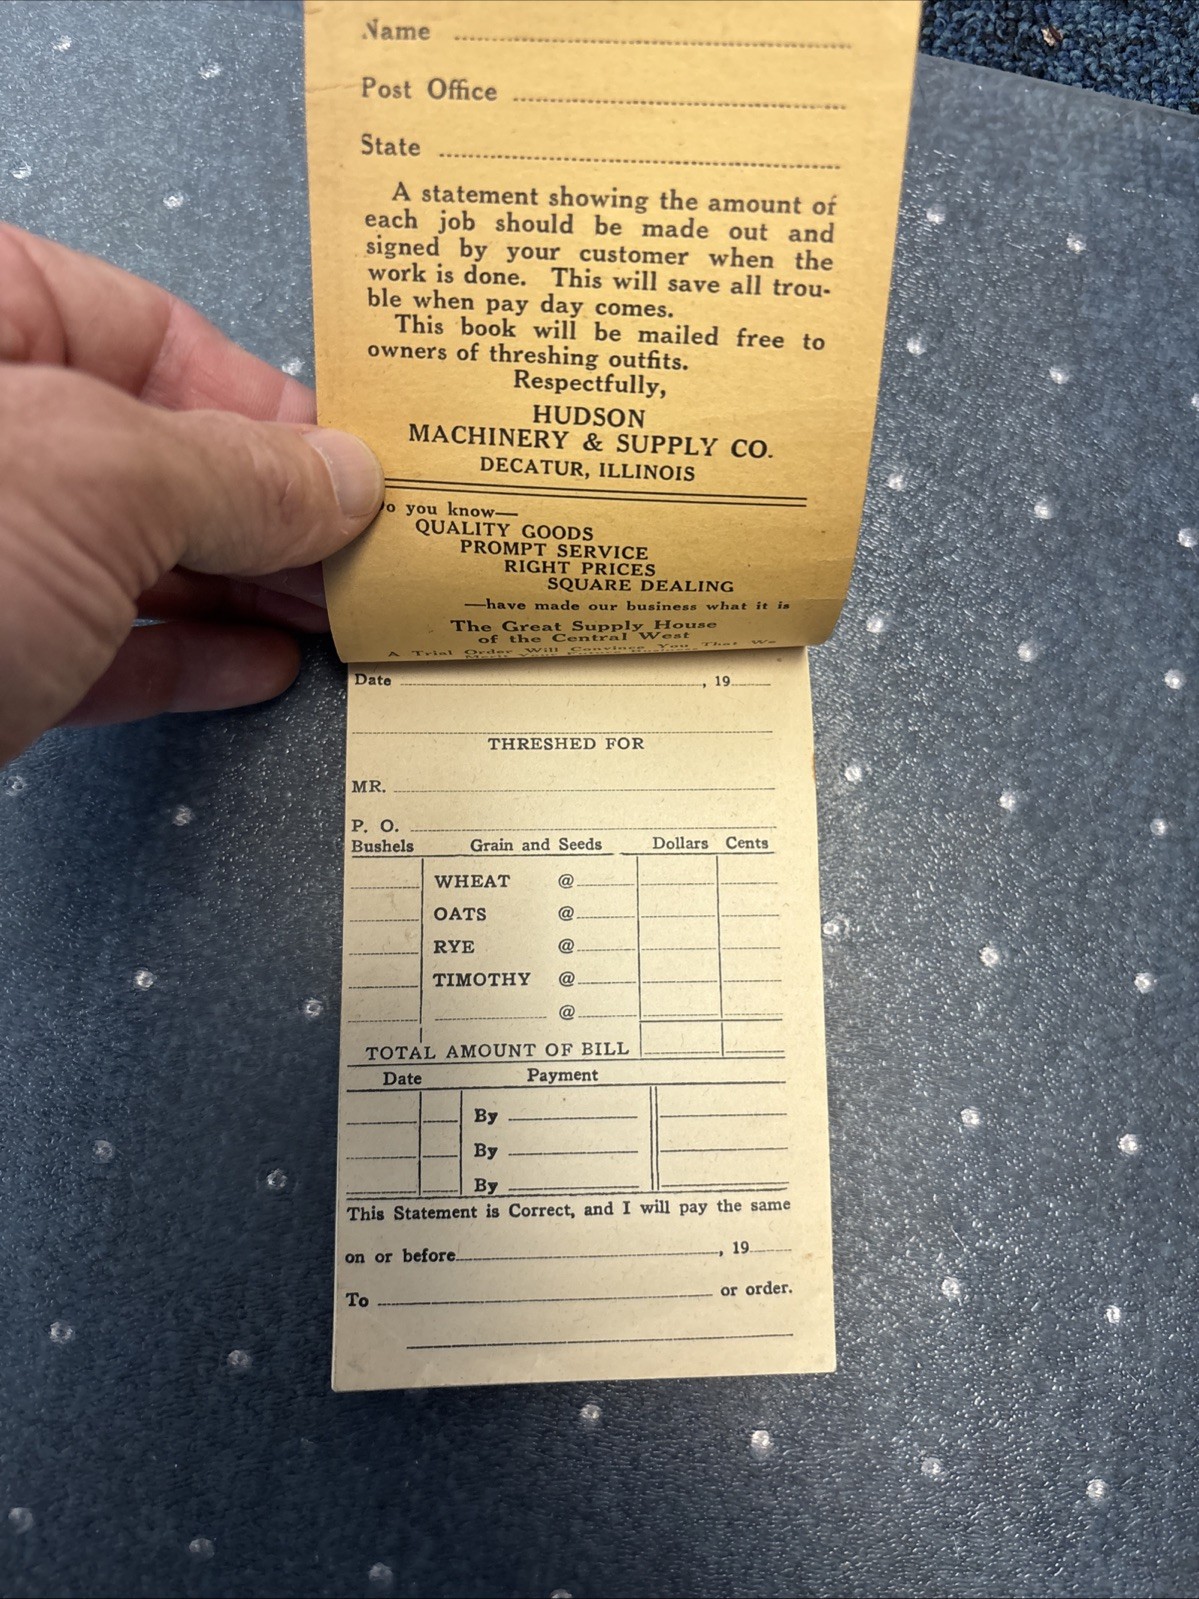 Name
Post Office
State
A statement showing the amount of
each job should be made out and
signed by your customer when the
work is done. This will save all trou-
ble when pay day comes.
This book will be mailed free to
owners of threshing outfits.
Respectfully,
HUDSON
MACHINERY & SUPPLY CO.
DECATUR, ILLINOIS
Do you know—
QUALITY GOODS
PROMPT SERVICE
RIGHT PRICES
SQUARE DEALING
—have made our business what it is
The Great Supply House
of the Central West
A Trial Order Will Convince You That We
Merit Your Future Business
Date , 19
THRESHED FOR
MR.
P. O.
Bushels Grain and Seeds Dollars Cents
WHEAT @
OATS @
RYE @
TIMOTHY @
@
TOTAL AMOUNT OF BILL
Date Payment
By
By
By
This Statement is Correct, and I will pay the same
on or before , 19
To or order.